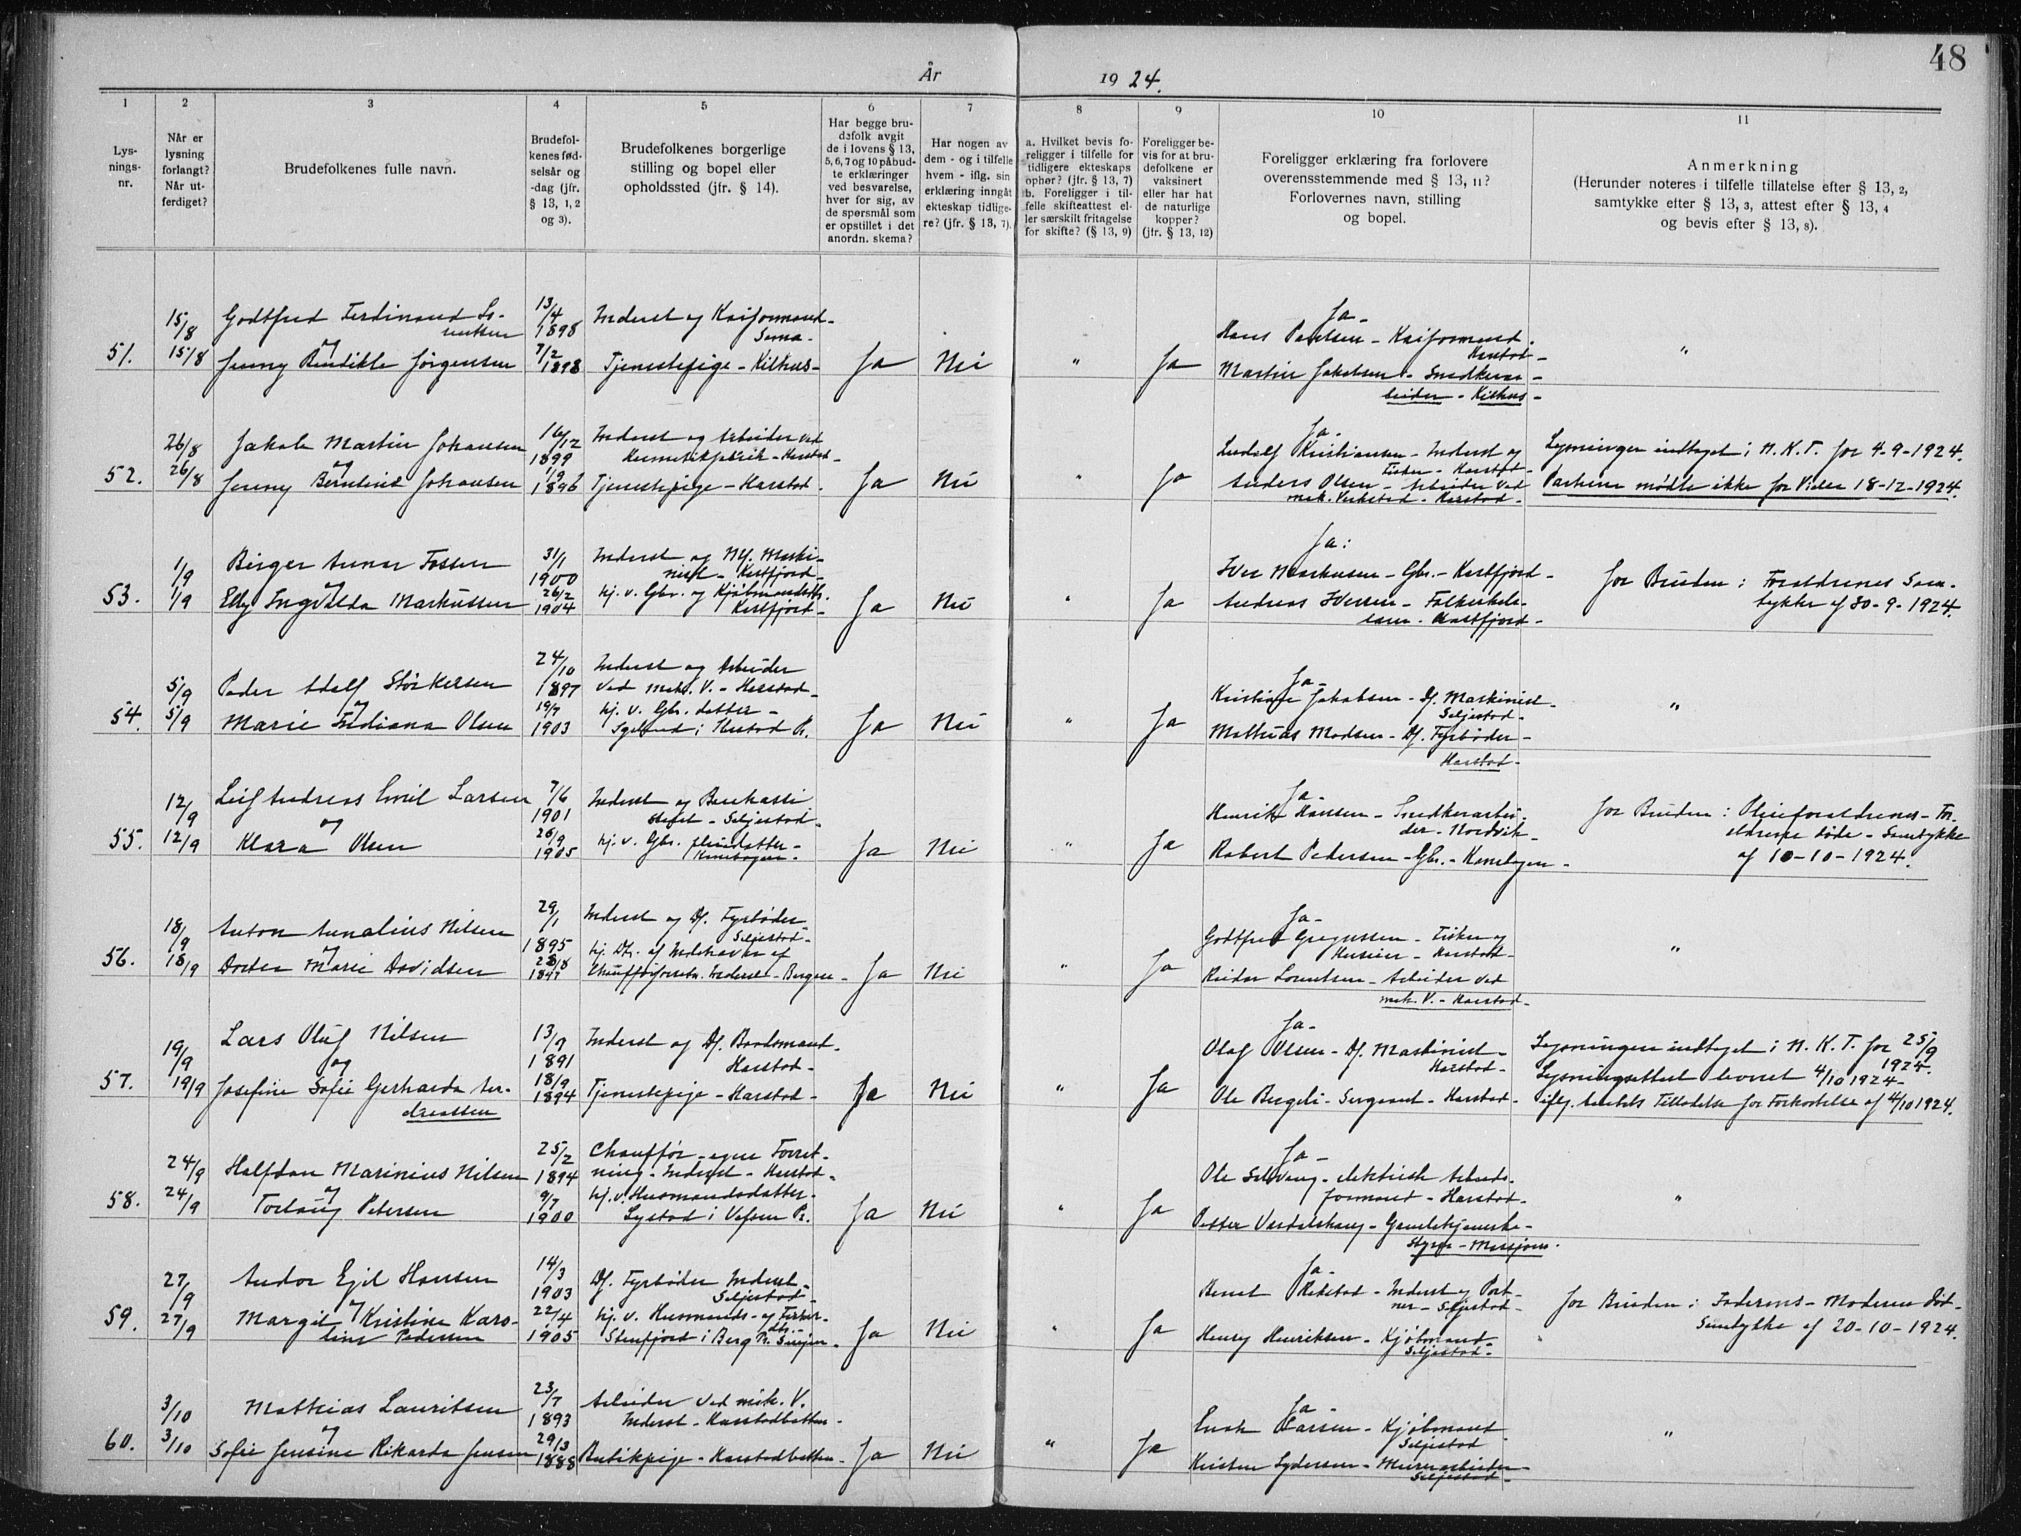 48
År 19 24.
1
2
3
4
5
6
7
8
9
10
11
Lys-
nings-
nr.
Når er
lysning
forlangt?
Når ut-
ferdiget?
Brudefolkenes fulle navn.
Brudefol-
kenes fød-
selsår og
-dag (jfr.
§ 13, 1, 2
og 3).
Brudefolkenes borgerlige
stilling og bopel eller
opholdssted (jfr. § 14).
Har begge bru-
defolk avgit
de i lovens § 13,
5, 6, 7 og 10 påbud-
te erklæringer
ved besvarelse,
hver for sig, av
de spørsmål som
er opstillet i det
anordn. skema?
Har nogen av
dem - og i tilfelle
hvem - iflg. sin
erklæring inngått
ekteskap tidlige-
re? (jfr. § 13, 7).
a. Hvilket bevis fo-
religger i tilfelle for
tidligere ekteskaps
ophør? (jfr. § 13, 7)
b. Foreligger i til-
felle skifteattest el-
ler særskilt fritagelse
for skifte? (§ 13, 9)
Foreligger be-
vis for at bru-
defolkene er
vaksinert
eller har hat
de naturlige
kopper?
(jfr. § 13, 12)
Foreligger erklæring fra forlovere
overensstemmende med § 13, 11?
Forlovernes navn, stilling
og bopel.
Anmerkning
(Herunder noteres i tilfelle tillatelse efter § 13, 2,
samtykke efter § 13, 3, attest efter § 13, 4
og bevis efter § 13, 8).
51.
15/8
15/8
Godtfred Ferdinand
og
Jenny Bendikte Jørgensen
13/4
1898
7/2
1898
Inderst og Kaiformand -
Sama -
Tjenestepige - Kilhus -
Ja
Nei
"
Ja
Ja -
Hans Paulsen - Kaiformand.
Harstad -
Martin Jakobsen - Snedkerar-
beider - Kilhus -
"
52.
26/8
26/8
Jakob Martin Johansen
og
Jenny Berntine Johansen
16/12
1899
1/9
1896
Inderst og Arbeider ved
Hermetikfabrik - Harstad -
Tjenestepige - Harstad.
Ja
Nei
"
Ja
Ja -
Ludolf Kristiansen - Inderst og
Fisker - Harstad -
Anders Olsen - Arbeider ved
mek. Verkstad - Harstad -
Lysningen indtaget i N. K. T. for 4-9-1924.
Parterne mødte ikke for Vielse 18-12-1924.
53.
1/9
1/9
Birger Fossen
og
Elly Ingvalda Markussen
31/1
1900
26/2
1904
Inderst og Maski-
nist - Kastfjord -
hj. v. Gbr. og Kjøbmandsdtr.
Kastfjord -
Ja
Nei
"
Ja
Ja:
Iver Markussen - Gbr. - Kastfjord -
Andreas Iversen - Folkeskole-
lærer - Kastfjord -
for Bruden: Forældrenes Sam-
tykke af 30-9-1924.
54.
5/9
5/9
Peder Adolf Størkersen
og
Marie Indiana Olsen
24/10
1897
19/7
1903
Inderst og Arbeider
ved mek. V. - Harstad -
hj. v. Gbr. datter -
i P.
Ja
Nei
"
Ja
Ja -
Jakobsen - Df. Maskinist -
Seljestad -
Mathias Madsen - Df. Fyrbøder -
Harstad -
"
55.
12/9
12/9
Leif Andreas Emil Larsen
og
Klara Olsen
7/6
1901
26/9
1905
Inderst og
Seljestad -
hj. v. Gbr. pleiedatter -
Kanebogen -
Ja
Nei
"
Ja
Ja -
Henrik Hansen - Snedkerarbei-
der - Nordvik -
Robert Pedersen - Gbr. - Kanebogen -
for Bruden: Pleieforældrenes - For-
ældrene døde - Samtykke
af 10-10-1924.
56.
18/9
18/9
Anton Nilsen
og
Dortea Marie Davidsen
29/1
1895
28/8
1897
Inderst og Df. Fyrbøder
Seljestad -
hj. Dtr. af
Inderst - Bergen -
Ja
Nei
"
Ja
Ja -
Godtfred Gregussen - Fisker og
Huseier - Harstad -
Reidar Lorentsen - Arbeider ved
mek. V. - Harstad -
"
57.
19/9
19/9
Lars Oluf Nilsen
og
Josefine Sofie Gerharda An-
dreassen
13/9
1891
18/9
1894
Inderst og Df. Baadsmand -
Harstad -
Tjenestepige - Harstad -
Ja
Nei
"
Ja
Ja -
Olaf Olsen - Df. Maskinist -
Harstad -
Ole Bergeli - Sergeant - Harstad -
Lysningen indtaget i N. K. T. for 25/9
1924.
Lysningsattest levert 4/10 1924 -
iflg. Amtets Tilladelse for Forkortelse af 4/10 1924.
58.
24/9
24/9
Halfdan Marinius Nilsen
og
Torlaug Petersen
25/2
1894
9/7
1900
Chauffør - egen Forret-
ning - Inderst - Harstad -
hj. v. Husmandsdatter -
i Vefsen P.
Ja
Nei
"
Ja
Ja -
Ole - elektrisk Arbeids-
formand - Harstad -
Petter - Gamlehjemsbe-
styrer - Mosjøen.
"
59.
27/9
27/9
Andor Ejel Hansen
og
Margit Kristine Karo-
line Pedersen
14/3
1903
22/4
1905
Df. Fyrbøder Inderst
Seljestad -
hj. v. Husmands- og Fisker-
dtr.
Stenfjord i Berg P. Senjen -
Ja
Nei
"
Ja
Ja -
Bernt - Inderst og
Seljestad -
Henry Henriksen - Kjøbmand
Seljestad -
for Bruden: Faderens - Moderen død -
Samtykke af 20-10-1924.
60.
3/10
3/10
Mathias Lauritsen
og
Sofie Jensine Rikarda Jensen
23/7
1893
29/3
1888
Arbeider ved mek. V.
Inderst - Harstadbotten -
Butikpige - Harstadbotten -
Ja
Nei
"
Ja
Ja -
Enok Larsen - Kjøbmand
Seljestad
Kristen Sydersen - Murerarbeider -
Seljestad -
"